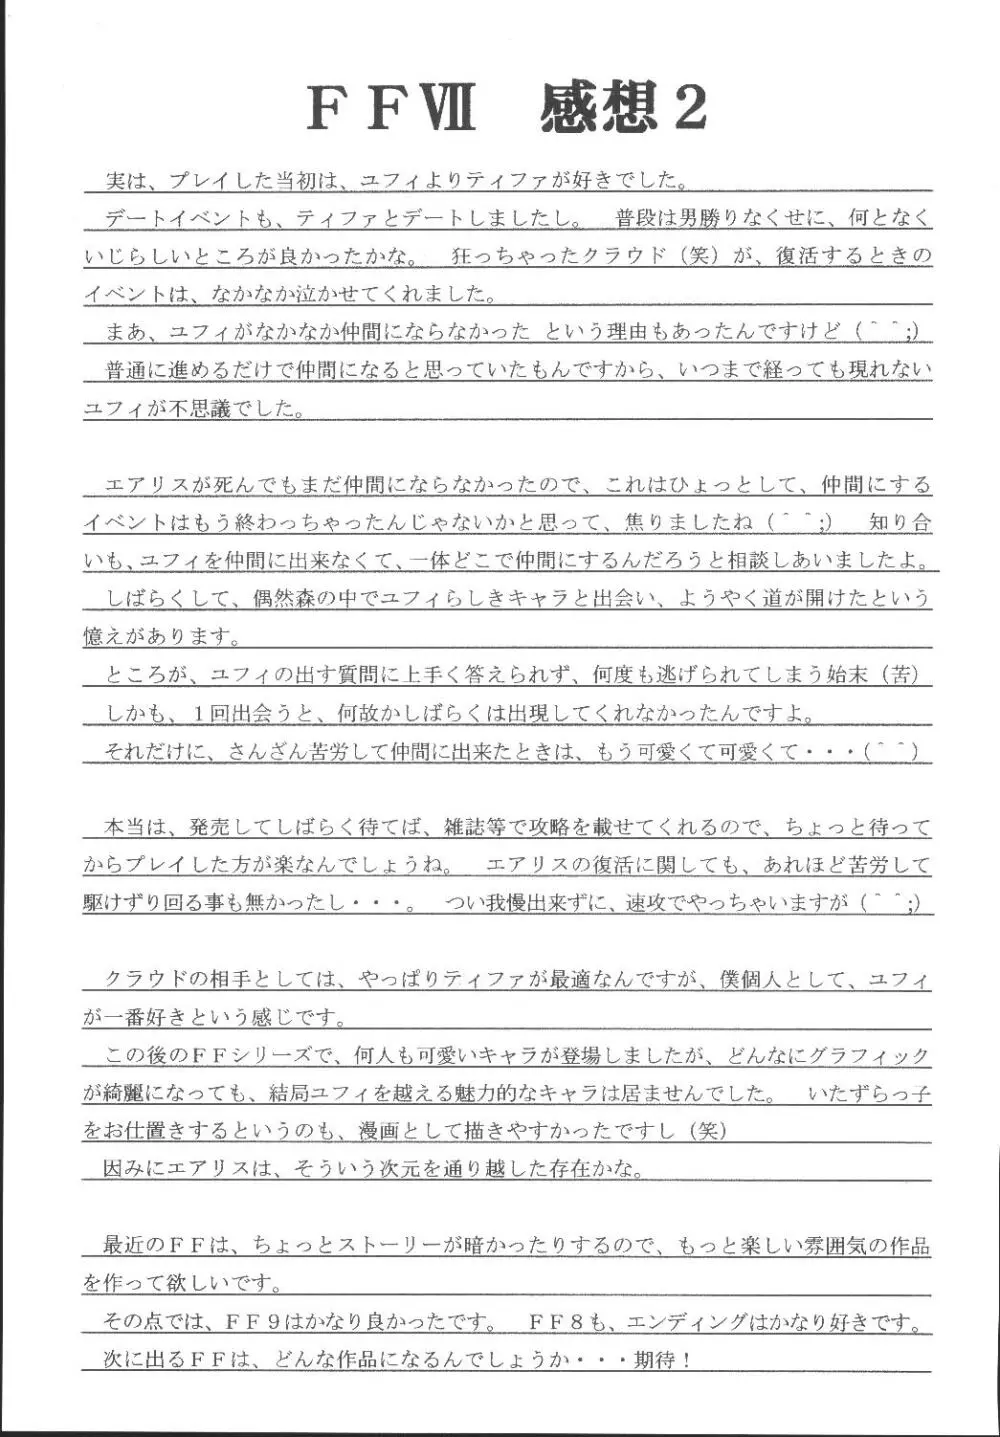 ＦＦⅦ　感想２
実は、プレイした当初は、ユフィよりティファが好きでした。
デートイベントも、ティファとデートしましたし。　普段は男勝りなくせに、何となく
いじらしいところが良かったかな。　狂っちゃったクラウド（笑）が、復活するときの
イベントは、なかなか泣かせてくれました。
まあ、ユフィがなかなか仲間にならなかった という理由もあったんですけど（＾＾;）
普通に進めるだけで仲間になると思っていたもんですから、いつまで経っても現れない
ユフィが不思議でした。
エアリスが死んでもまだ仲間にならなかったので、これはひょっとして、仲間にする
イベントはもう終わっちゃったんじゃないかと思って、焦りましたね（＾＾;）　知り合
いも、ユフィを仲間に出来なくて、一体どこで仲間にするんだろうと相談しあいましたよ。
しばらくして、偶然森の中でユフィらしきキャラと出会い、ようやく道が開けたという
憶えがあります。
ところが、ユフィの出す質問に上手く答えられず、何度も逃げられてしまう始末（苦）
しかも、１回出会うと、何故かしばらくは出現してくれなかったんですよ。
それだけに、さんざん苦労して仲間に出来たときは、もう可愛くて可愛くて・・・（＾＾）
本当は、発売してしばらく待てば、雑誌等で攻略を載せてくれるので、ちょっと待って
からプレイした方が楽なんでしょうね。　エアリスの復活に関しても、あれほど苦労して
駆けずり回る事も無かったし・・・。　つい我慢出来ずに、速攻でやっちゃいますが（＾＾;）
クラウドの相手としては、やっぱりティファが最適なんですが、僕個人として、ユフィ
が一番好きという感じです。
この後のＦＦシリーズで、何人も可愛いキャラが登場しましたが、どんなにグラフィック
が綺麗になっても、結局ユフィを越える魅力的なキャラは居ませんでした。　いたずらっ子
をお仕置きするというのも、漫画として描きやすかったですし（笑）
因みにエアリスは、そういう次元を通り越した存在かな。
最近のＦＦは、ちょっとストーリーが暗かったりするので、もっと楽しい雰囲気の作品
を作って欲しいです。
その点では、ＦＦ９はかなり良かったです。　ＦＦ８も、エンディングはかなり好きです。
次に出るＦＦは、どんな作品になるんでしょうか・・・期待！